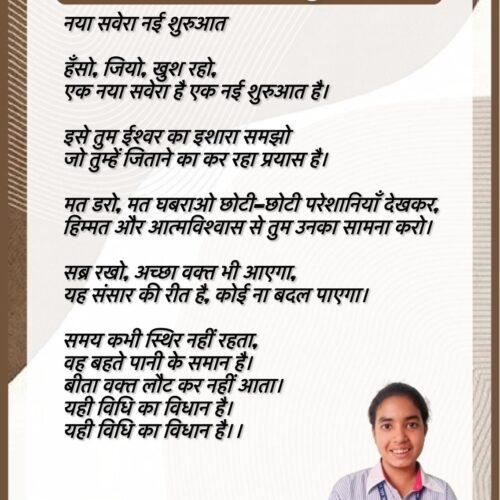 नया सवेरा नई शुरुआत
हँसो, जियो, खुश रहो,
एक नया सवेरा है एक नई शुरुआत है।
इसे तुम ईश्वर का इशारा समझो
जो तुम्हें जिताने का कर रहा प्रयास है।
मत डरो, मत घबराओ छोटी-छोटी परेशानियाँ देखकर,
हिम्मत और आत्मविश्वास से तुम उनका सामना करो।
सब्र रखो, अच्छा वक्त भी आएगा,
यह संसार की रीत है, कोई ना बदल पाएगा।
समय कभी स्थिर नहीं रहता,
वह बहते पानी के समान है।
बीता वक्त लौट कर नहीं आता।
यही विधि का विधान है।
यही विधि का विधान है।।